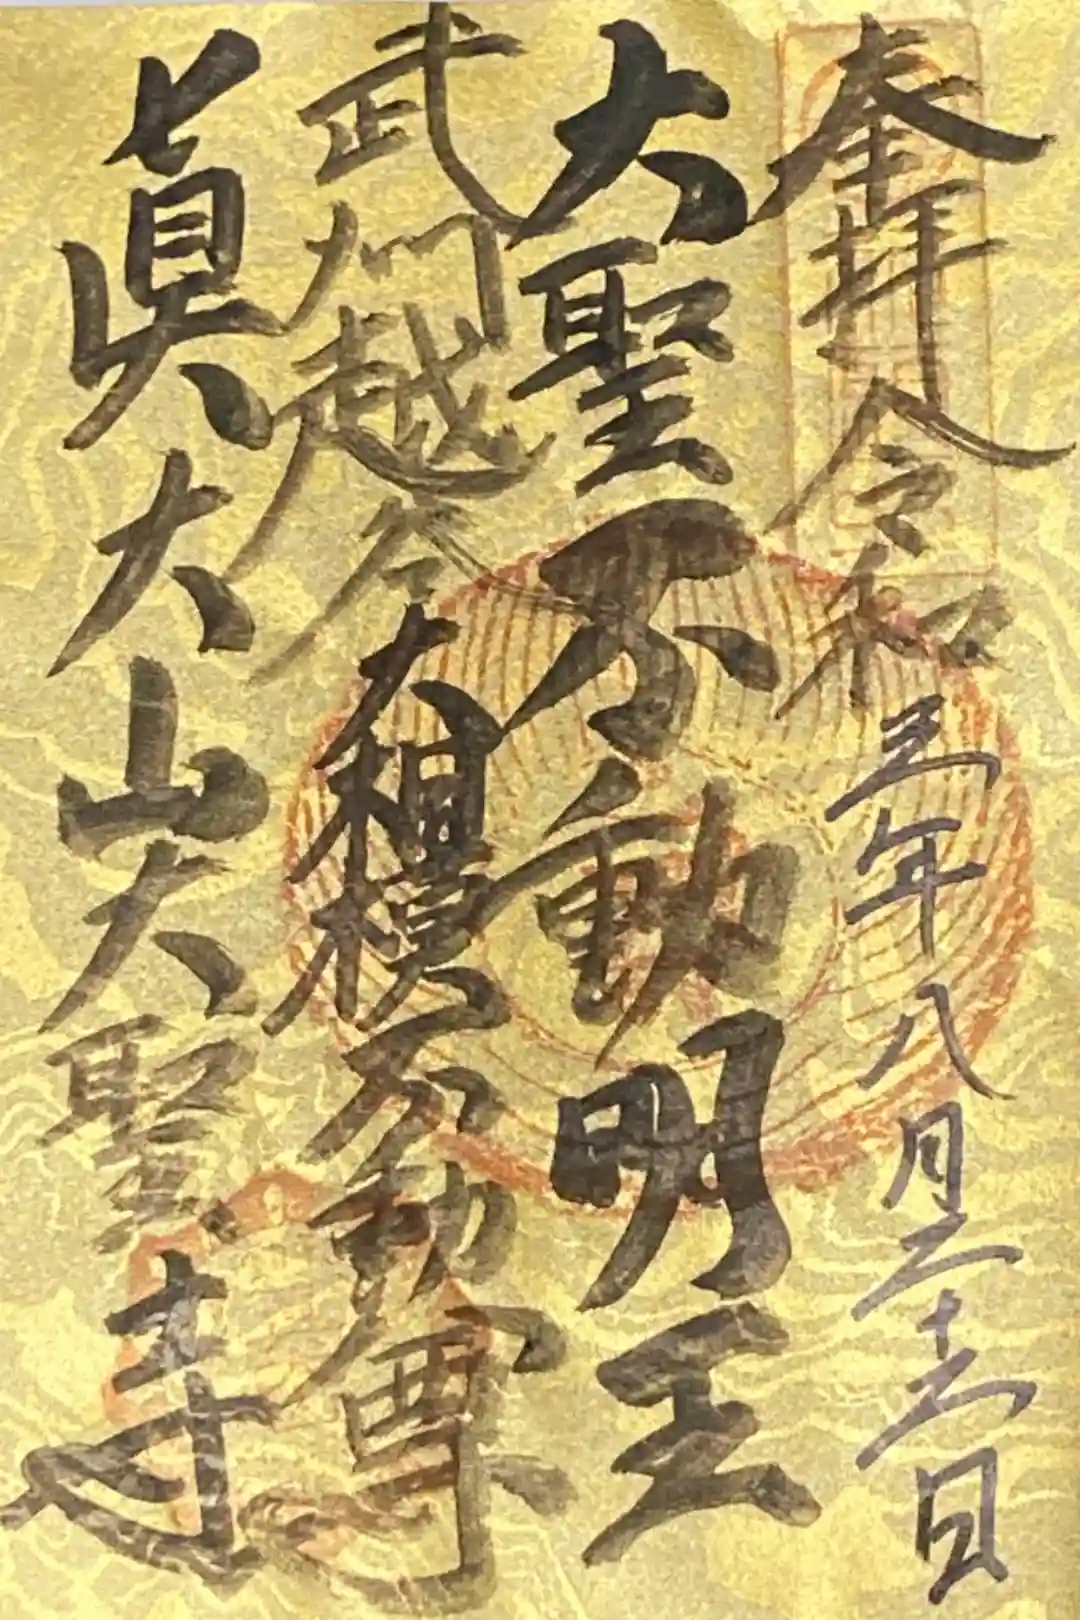 奉拝 令和三年八月二十三日
大聖不動明王
武州越谷 大相模不動尊
眞大山大聖寺